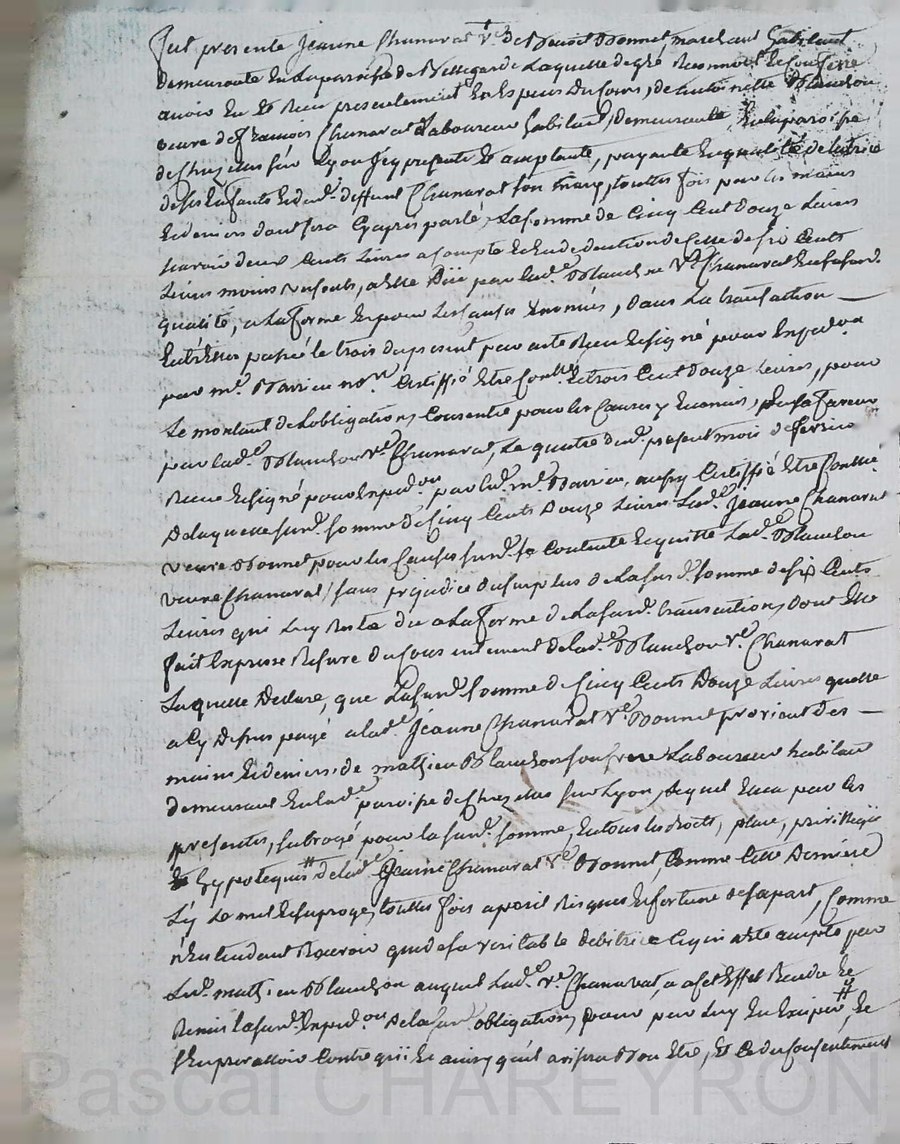 fut presente Jeanne Chanarat v.e de Benoit Bonnet marchant habitant
demeurante En La parroisse de Bellegarde Laquelle de gré Reconnoit et Confesse
avoir Eu et Receu presentement En Especes du Cours, de Antoinette Blanchon
veuve de francois Chanarat Laboureur habitant, demeurante, En La paroisse
de Chazelles sur Lyon Icy presente et acceptante, payante En qualité de tutrice
de ses Enfants et dud. deffunt Chanarat son mary, touttes fois par les mains
Et deniers dont sera Cy apres parlé, La somme de Cinq Cent douze Livres
Livres moins sols, a Elle düe par lad.e Blanchon v.e Chanarat En sa sud.
qualité, a La forme Et pour Les Causes Enoncées, dans La transaction
Entr'Elles passée le trois du present par acte Receu Et signé pour Expedon
par m.e Barrieu no.re Certiffié Etre Conllé Et trois Cent douze Livres, pour
Le montant de L'obligation Consentie pour les Causes y Enoncées, En sa faveur
par lad.e Blanchon v.e Chanarat, Le quatre dud. present mois de fevrier
Receue Et signé pour Expedon par led. m.e Barrieu, aussy Certiffié Etre Conllé
De laquelle sus d. somme de Cinq Cents Douze Livres Lad.e Jeanne Chanarat
veuve Bonnet pour les Causes sus d. se Contente Et quitte Lad.e Blanchon
veuve Chanarat, sans prejudice du surplus de La sus d. somme de six Cents
Livres qui Luy Reste du a La forme de La sus d. transaction, dont Elle
fait Expresse Reserve du Consentement de lad.e Blanchon v.e Chanarat
Laquelle Declare, que La sus d. somme de Cinq Cents Douze Livres quelle
a Cy Dessus payé a lad.e Jeanne Chanarat v.e Bonnet provient des
mains Et deniers, de mathieu Blanchon son frere Laboureur habitant
demeurant En lad.e paroisse de Chazelles sur Lyon, Lequel Sera par les
presentes, subrogé pour la sus d. somme, En tous les droits, place, privilleges
Et hypoteques # de lad.e Jeanne Chanarat v.e Bonnet, Comme Cette Derniere
L'y Le met Et subroge, touttes fois a peril Risques Et fortune de sa part, Comme
n'Entendant Recevoir que de sa veritable debitrice Ce qui a Eté accepté par
Led. mathieu Blanchon auquel Lad.e v.e Chanarat, a a Cet Effet Rendu Et
Remis La sus d. Expedon De la sus d. obligation, pour par Luy En Exciper, Et
S'En prevaloir Contre qui Et ainsy qu'il avisera Bon Etre, Et Ce du Consentement
Pascal CHAREYRON